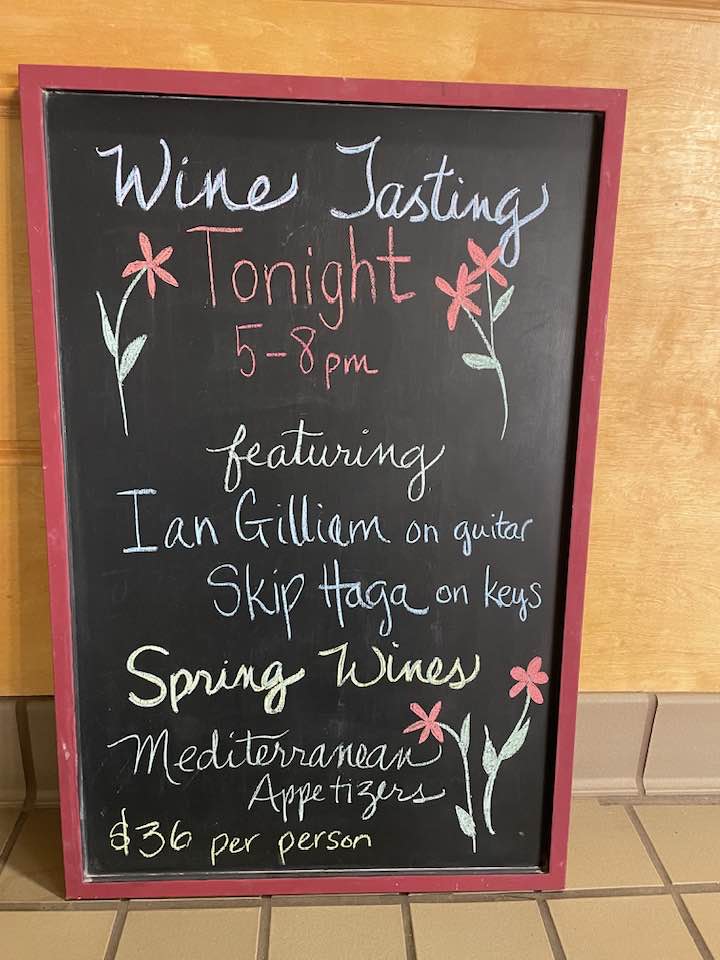 Wine Tasting
Tonight
5-8pm
featuring
Ian Gilliam on guitar
Skip Haga on keys
Spring Wines
Mediterranean
Appetizers
$36 per person